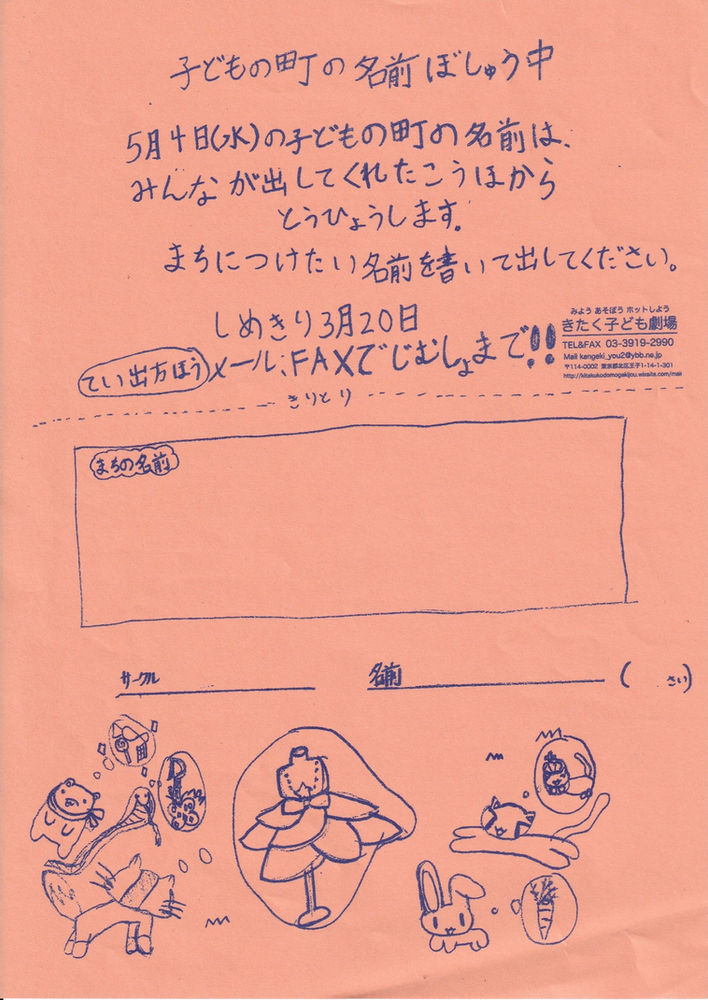 子どもの町の名前ぼしゅう中
5月4日(水)の子どもの町の名前は、
みんなが出してくれたこうほから
とうひょうします。
まちにつけたい名前を書いて出してください。
しめきり3月20日
てい出方ほう メール、FAXでじむしょまで!!
みよう あそぼう ホットしよう
きたく子ども劇場
TEL&FAX 03-3919-2990
Mail kangeki_you2@ybb.ne.jp
〒114-0002 東京都北区王子1-14-1-301
http://kitakukodomogekijou.wixsite.com/main
きりとり
まちの名前
サークル 名前 ( さい)